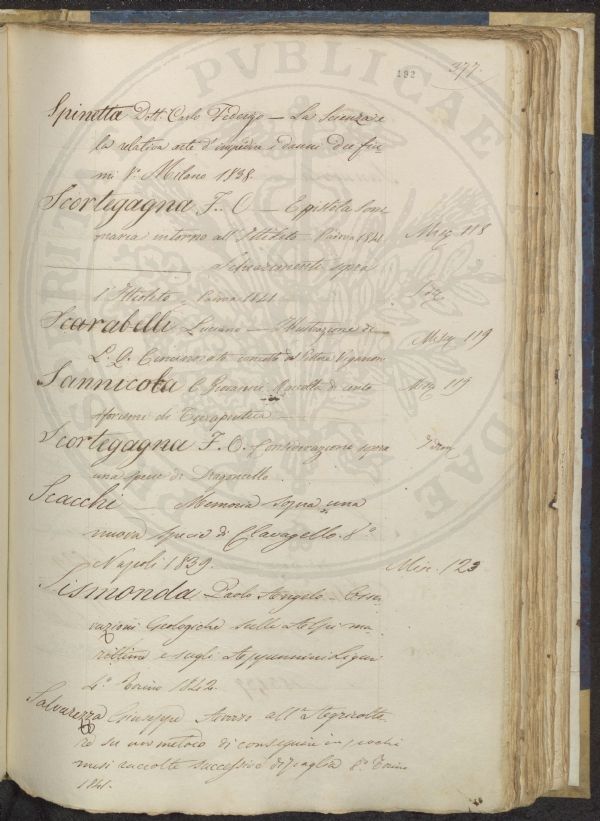 192 397.
Spinetta Dott. Carlo Federigo — La Scienza e
la relativa arte d'impedire i danni dei fiu
mi 8.° Milano 1838.
Scortegagna F. O. — Epistola
intorno all' Padova 1841 Mis. 118
sopra
l' 1841
Scarabelli Luciano — Illustrazione di Misc. 119
L. Q. Cincinnato del Pittore
Sannicola C. Giovanni Raccolta di cento Misc. 119
aforismi di Terapeutica —
Scortegagna F. O. Considerazione sopra
una specie di Dragoncello.
Scacchi — Memoria sopra una
nuova specie di Clavagella. 8.°
Napoli 1839. Mis. 123
Sismonda Paolo Angelo — Osser
vazioni Geologiche sulle Alpi ma
rittime e sugli Appennini Liguri
4.° Torino 1842.
Salvarezza Giuseppe Avviso all' Agricolto
re su un metodo di conseguire in pochi
mesi raccolte successive di 8.° Torino
1841.